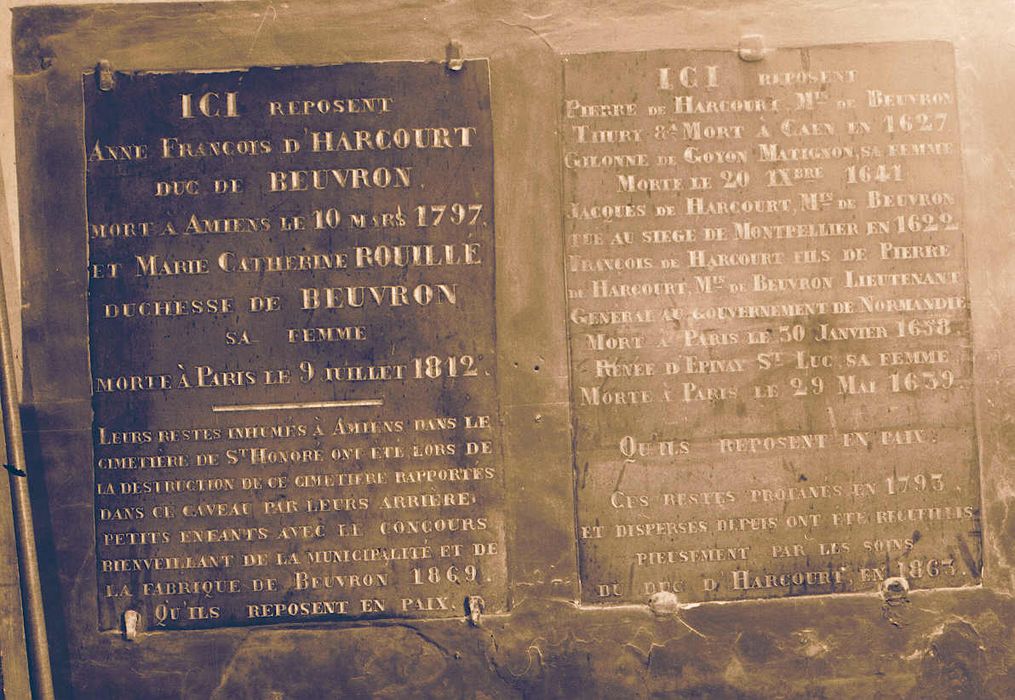 ICI REPOSENT
ANNE FRANÇOIS D'HARCOURT
DUC DE BEUVRON.
MORT À AMIENS LE 10 MARS 1797.
ET MARIE CATHERINE ROUILLE
DUCHESSE DE BEUVRON
SA FEMME
MORTE À PARIS LE 9 JUILLET 1812.
LEURS RESTES INHUMES À AMIENS DANS LE
CIMETIÈRE DE ST HONORÉ ONT ÉTÉ LORS DE
LA DESTRUCTION DE CE CIMETIÈRE RAPPORTÉS
DANS CE CAVEAU PAR LEURS ARRIÈRE
PETITS ENFANTS AVEC LE CONCOURS
BIENVEILLANT DE LA MUNICIPALITÉ ET DE
LA FABRIQUE DE BEUVRON 1869.
QU'ILS REPOSENT EN PAIX.
ICI REPOSENT
PIERRE DE HARCOURT, MIS DE BEUVRON
THURY &A MORT À CAEN EN 1627
GILONNE DE GOYON MATIGNON, SA FEMME
MORTE LE 20 IXBRE 1641
JACQUES DE HARCOURT, MIS DE BEUVRON
TUÉ AU SIEGE DE MONTPELLIER EN 1622
FRANÇOIS DE HARCOURT FILS DE PIERRE
DE HARCOURT, MIS DE BEUVRON LIEUTENANT
GENERAL AU GOUVERNEMENT DE NORMANDIE
MORT À PARIS LE 30 JANVIER 1658
RENÉE D'EPINAY ST LUC, SA FEMME
MORTE À PARIS LE 29 MAI 1639.
QU'ILS REPOSENT EN PAIX.
CES RESTES PROFANÉS EN 1793.
ET DISPERSÉS DEPUIS ONT ÉTÉ RECUEILLIS
PIEUSEMENT PAR LES SOINS
DU DUC D'HARCOURT, EN 1863.